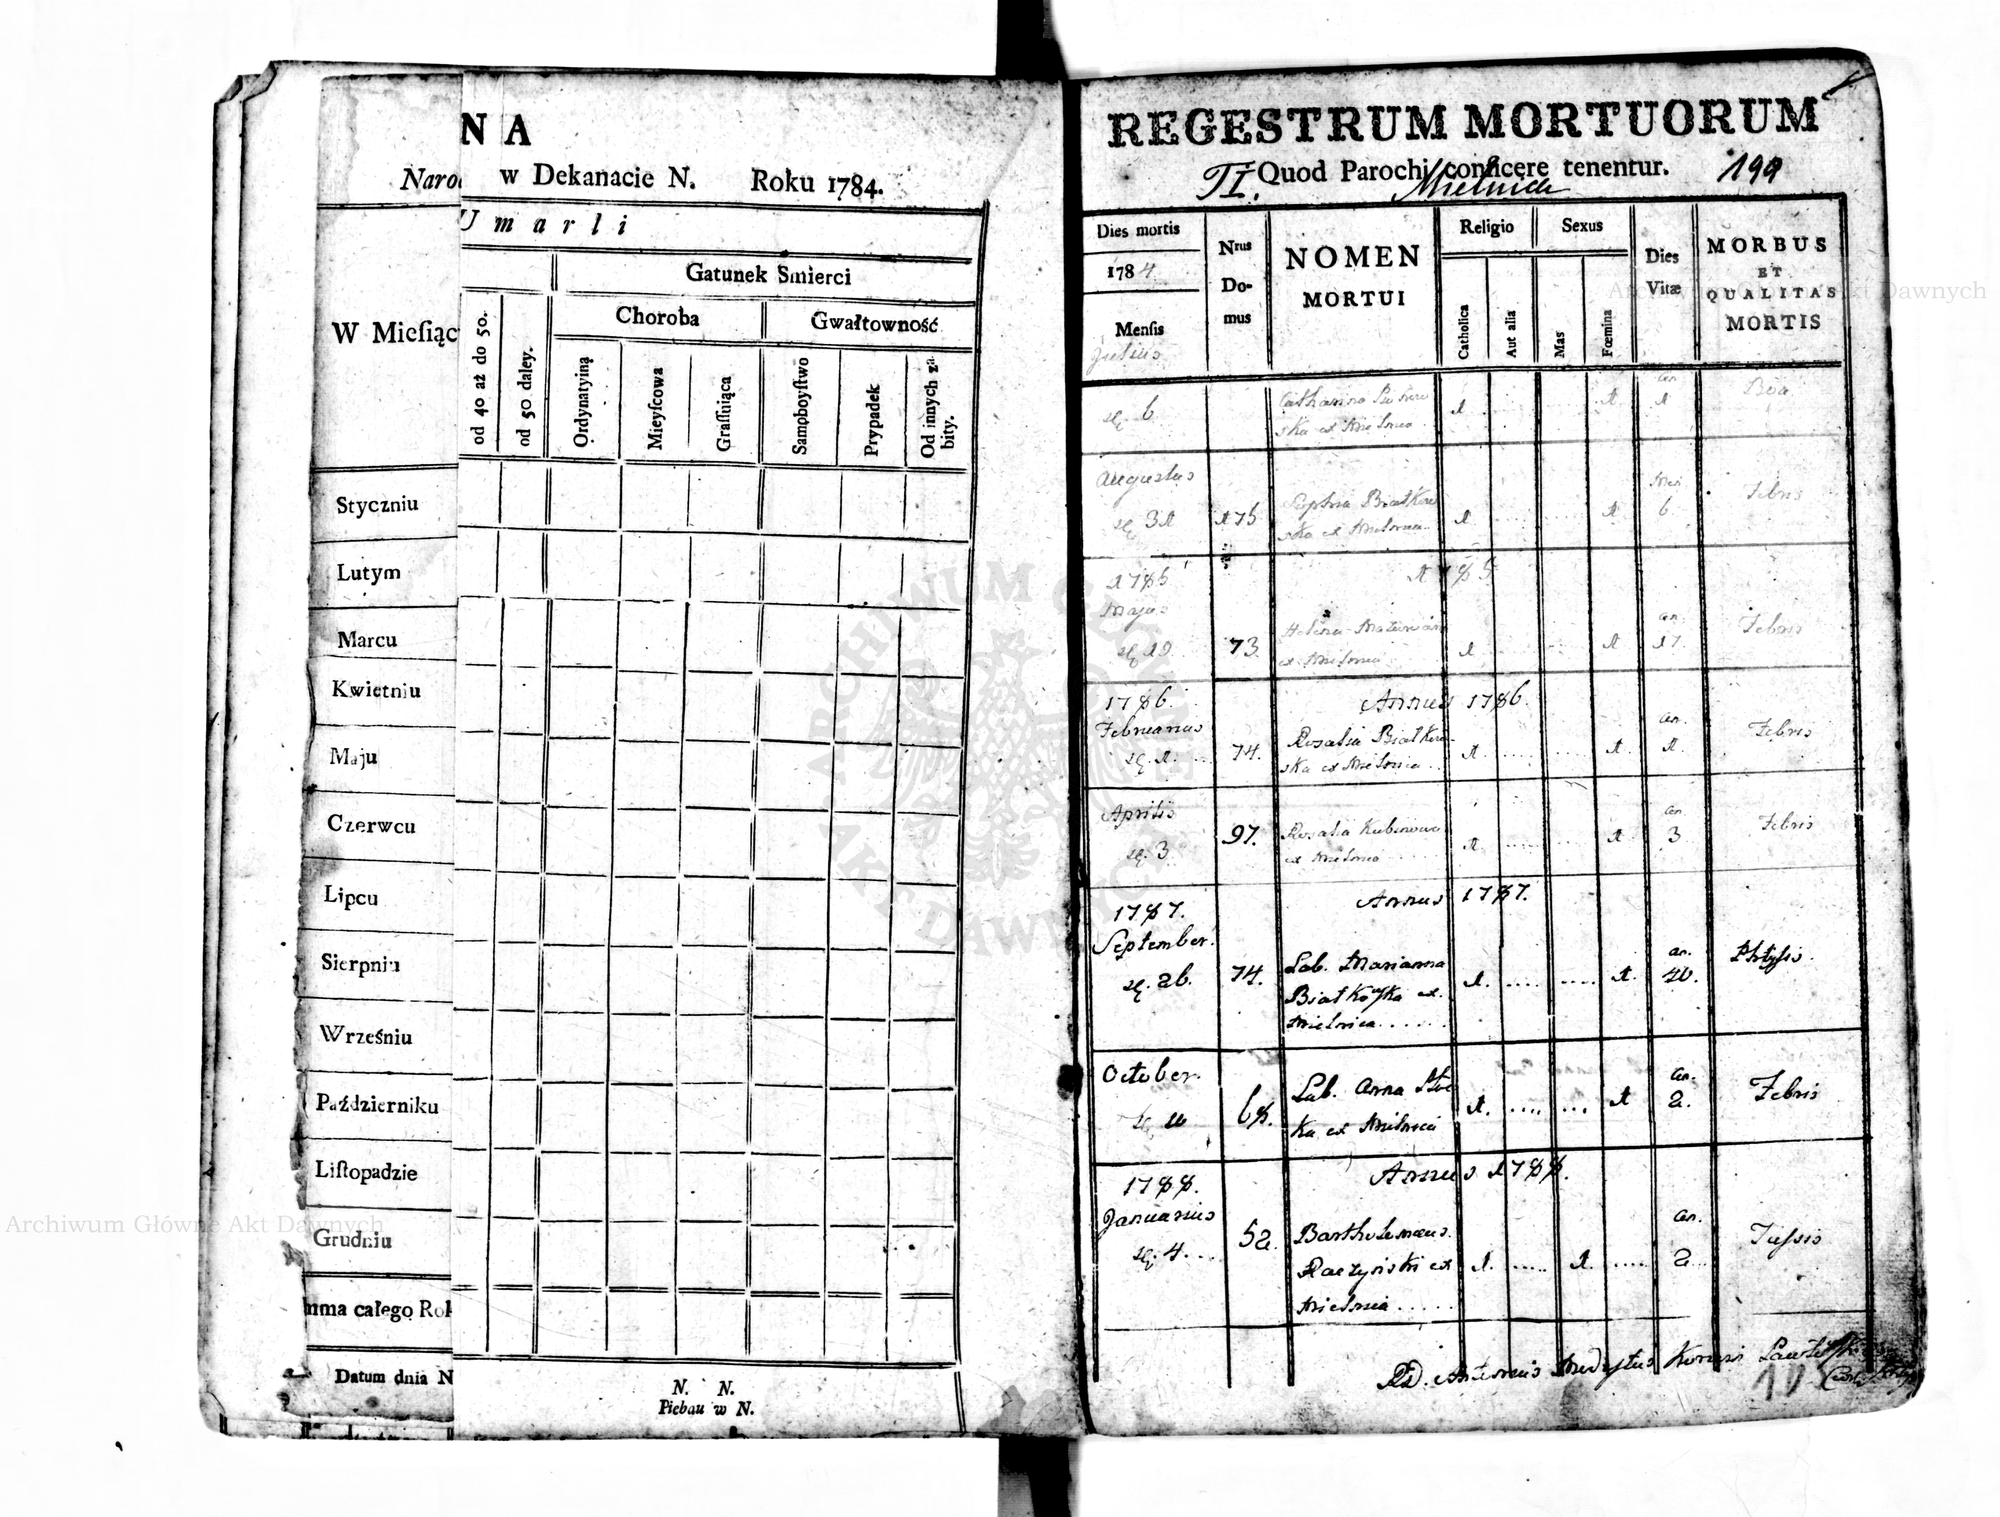 NA
Naro w Dekanacie N. Roku 1784.
Umarli
Gatunek Smierci
W Mieſiąc
Choroba
Gwałtowność
od 40 aż do 50.
od 50 daley.
Ordynatyiną
Mieyſcowa
Graſſuiąca
Sampboyſtwo
Prypadek
Od innych za
bity.
Styczniu
Lutym
Marcu
Kwietniu
Maju
Czerwcu
Lipcu
Sierpniu
Wrześniu
Październiku
Liſtopadzie
Grudniu
mma całego Rok
Datum dnia N
N. N.
Plebau w N.
REGESTRUM MORTUORUM
TI. Quod Parochi conficere tenentur. 199
Mielnica
Dies mortis
1784
Menſis
Julius
Nrus
Do-
mus
NOMEN
MORTUI
Religio
Catholica
Aut alia
Sexus
Mas
Fœmina
Dies
Vitæ
MORBUS
ET
QUALITAS
MORTIS
6
Catharina
ska ex Mielnica
1 1 an. 1
Augustus
31 175
Sophia Białkow
ska ex Mielnica
1 1 6 Febris
1785 1785
Majus
19 73
Helena
ex Mielnica
1 1 an. 17 Febris
1786. Annus 1786.
Februarius
1. 74.
Rosalia Białkow-
ska ex Mielnica
1. 1. an. 1. Febris
Aprilis
3. 97.
Rosalia
ex Mielnica
1. 1. an. 3 Febris
1787. Annus 1787.
September.
26. 74.
Lab. Marianna
Białkowska ex
Mielnica
1. 1. an. 40. Phtysis.
October.
68.
Lab. Anna
ka ex Mielnica
1. 1 an. 2. Febris
1788. Annus 1788.
Januarius
4. 52.
Bartholomæus
Raczyński ex
Mielnica
1. 1. an. 2. Tussis
Antonius
Archiwum Główne Akt Dawnych
Archiwum Główne Akt Dawnych
ARCHIWUM GŁÓWNE
AKT DAWNYCH